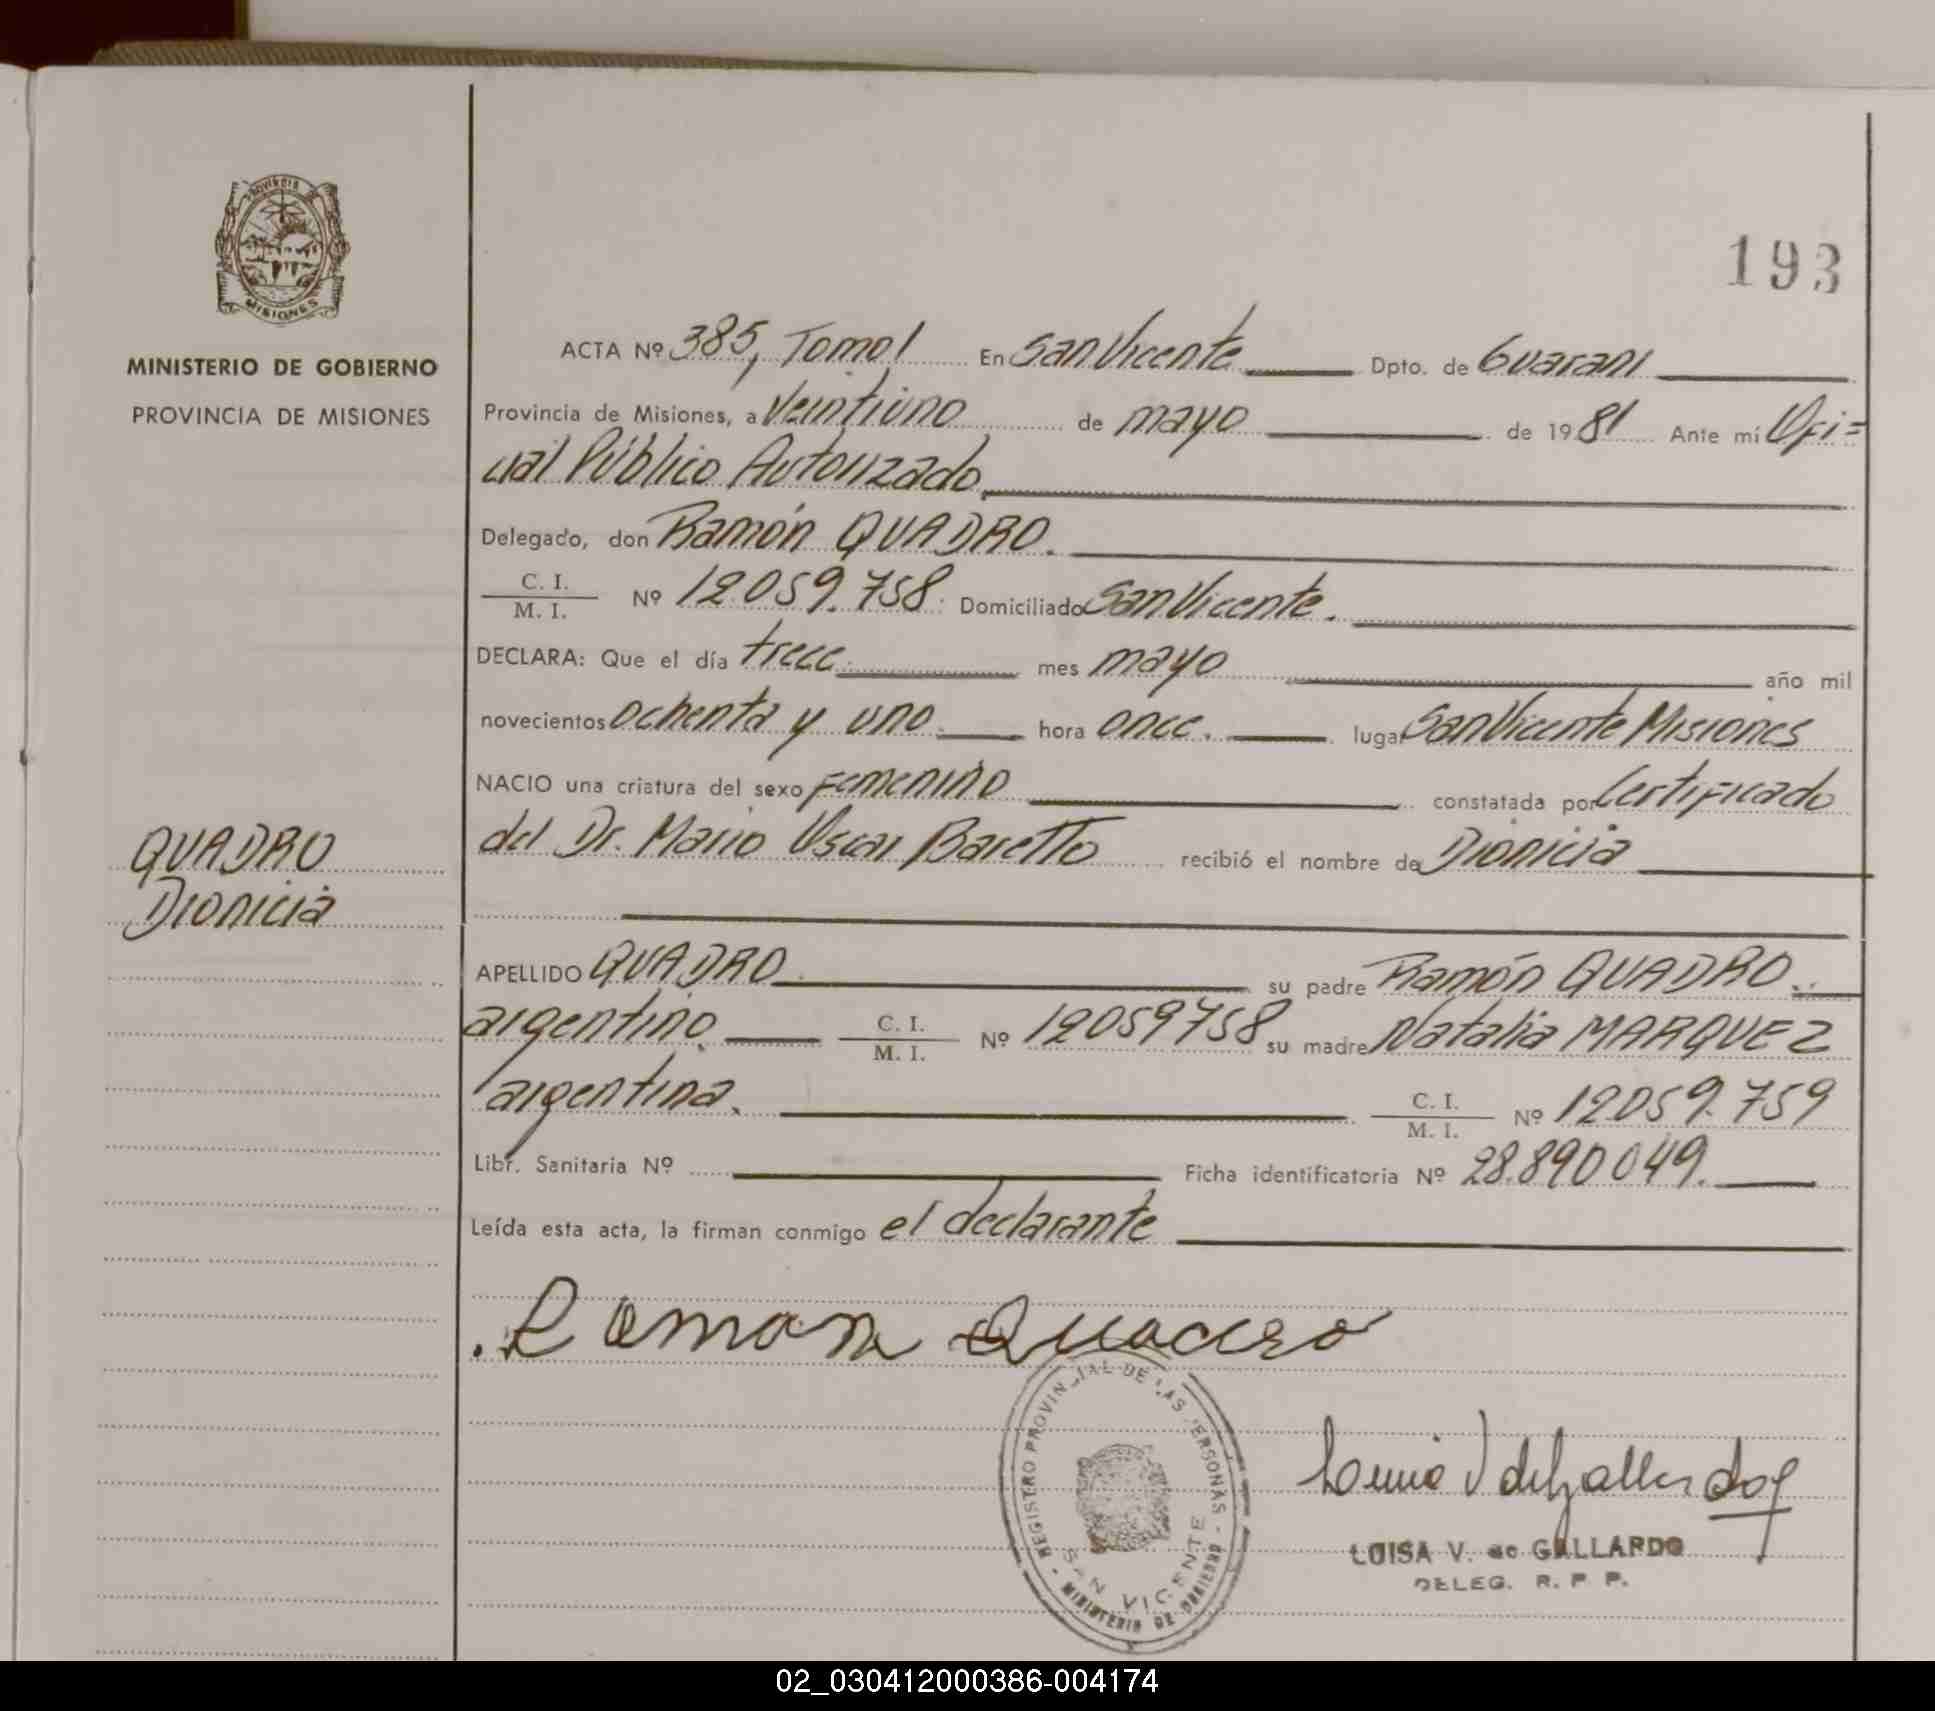 PROVINCIA DE
MISIONES
MINISTERIO DE GOBIERNO
PROVINCIA DE MISIONES
193
ACTA Nº 385, Tomo I En San Vicente Dpto. de Guaraní
Provincia de Misiones, a Veintiuno de mayo de 1981 Ante mí Ofi=
cial Público Autorizado
Delegado, don Ramón QUADRO.
C. I.
M. I. Nº 12.059.758. Domiciliado San Vicente.
DECLARA: Que el día trece. mes mayo año mil
novecientos ochenta y uno. hora once. lugar San Vicente Misiones
NACIO una criatura del sexo Femenino constatada por Certificado
del Dr. Mario Oscar Baretto recibió el nombre de Dionicia
QUADRO
Dionicia
APELLIDO QUADRO. su padre Ramón QUADRO.
argentino. C. I.
M. I. Nº 12059758 su madre Natalia MARQUEZ
argentina. C. I.
M. I. Nº 12059.759
Libr. Sanitaria Nº Ficha identificatoria Nº 28.890.049.
Leída esta acta, la firman conmigo el declarante
Ramon Quadro
REGISTRO PROVINCIAL DE LAS PERSONAS
SAN VICENTE
- MINISTERIO DE GOBIERNO -
Luisa V de Gallardo
LUISA V. de GALLARDO
DELEG. R. P. P.
02_030412000386-004174